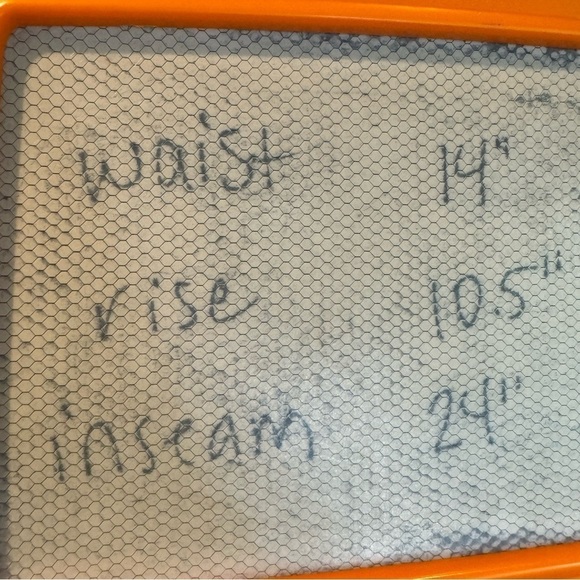 waist 14"
rise 10.5"
inseam 24"